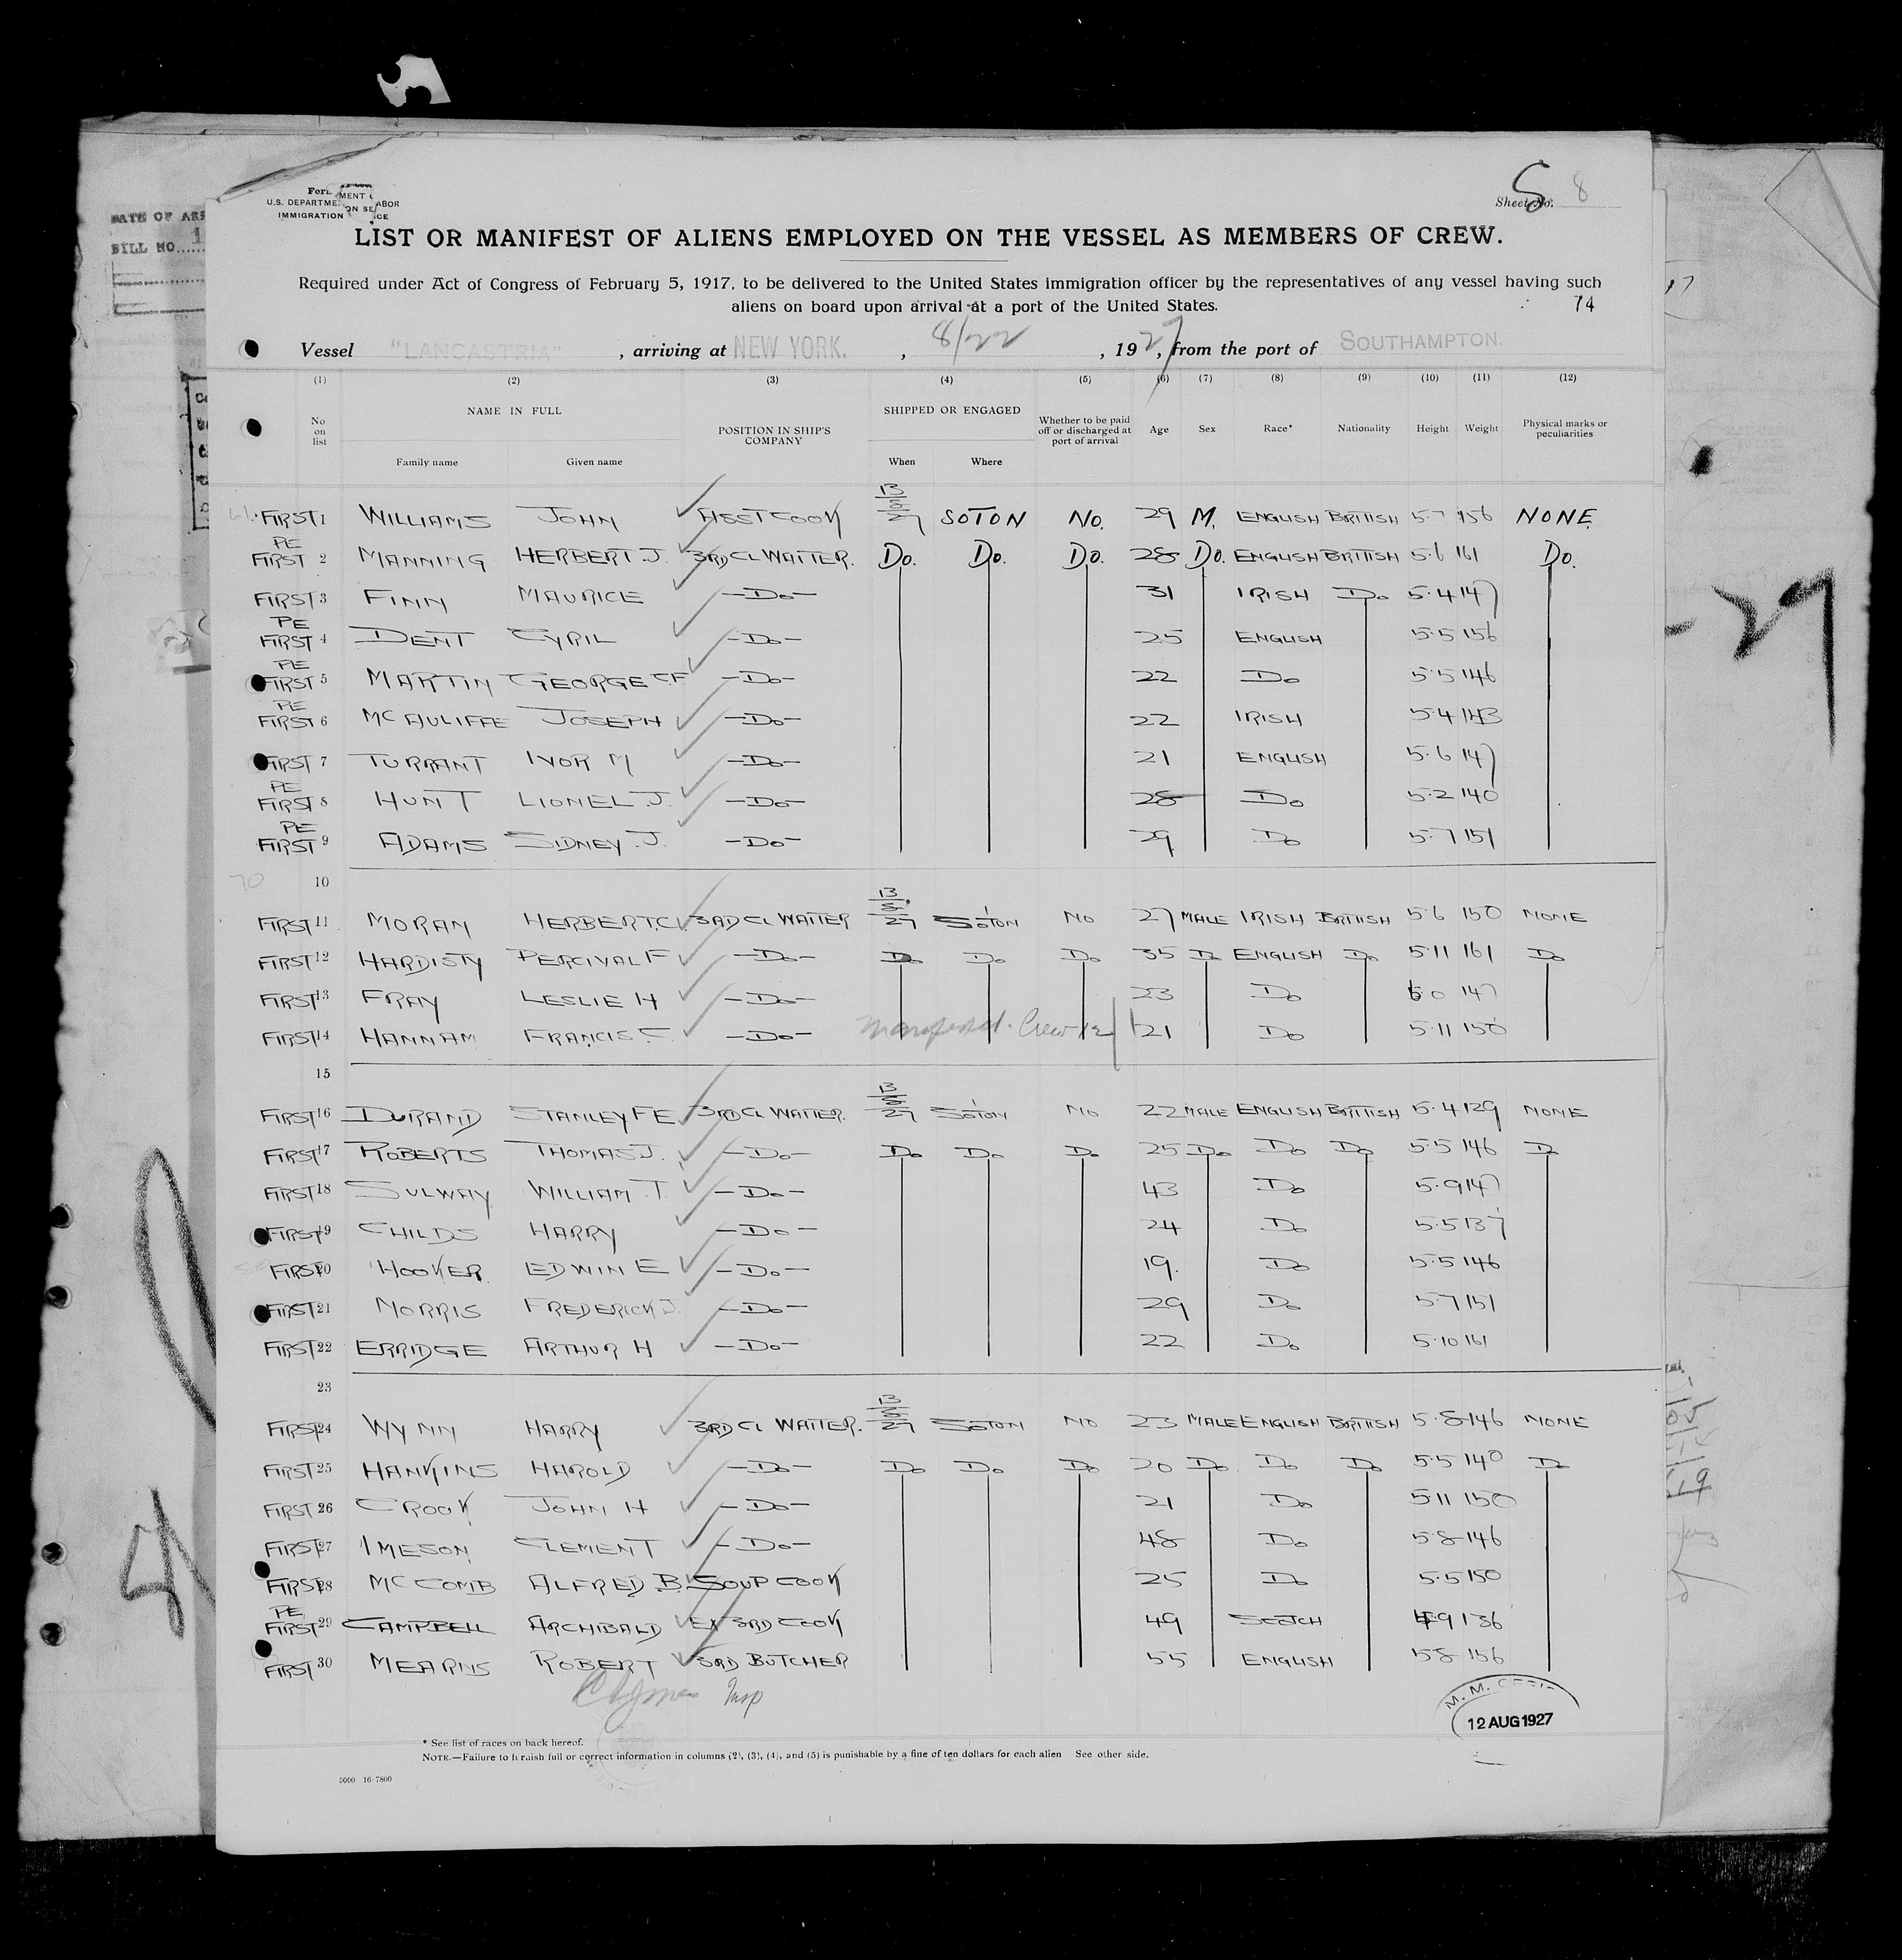 DATE OF ARR
BILL NO.
U.S. DEPARTME ABOR
IMMIGRATION
Sheet No. 8
LIST OR MANIFEST OF ALIENS EMPLOYED ON THE VESSEL AS MEMBERS OF CREW.
Required under Act of Congress of February 5, 1917, to be delivered to the United States immigration officer by the representatives of any vessel having such
aliens on board upon arrival at a port of the United States.
74
Vessel "LANCASTRIA" , arriving at NEW YORK. , 8/22 , 1927, from the port of SOUTHAMPTON.
(1) (2) (3) (4) (5) (6) (7) (8) (9) (10) (11) (12)
No on list NAME IN FULL POSITION IN SHIP'S COMPANY SHIPPED OR ENGAGED Whether to be paid off or discharged at port of arrival Age Sex Race* Nationality Height Weight Physical marks or peculiarities
Family name Given name When Where
FIRST 1 WILLIAMS JOHN ASST COOK 13/8/27 SOTON NO. 29 M. ENGLISH BRITISH 5.7 156 NONE
PE FIRST 2 MANNING HERBERT J. 3RD CL WAITER. Do. Do. Do. 28 Do. ENGLISH BRITISH 5.6 161 Do.
FIRST 3 FINN MAURICE -Do- 31 IRISH Do 5.4 147
PE FIRST 4 DENT CYRIL -Do- 25 ENGLISH 5.5 156
PE FIRST 5 MARTIN GEORGE C.F -Do- 22 Do 5.5 146
PE FIRST 6 MCAULIFFE JOSEPH -Do- 22 IRISH 5.4 143
FIRST 7 TURRANT IVOR M -Do- 21 ENGLISH 5.6 147
PE FIRST 8 HUNT LIONEL J. -Do- 28 Do 5.2 140
PE FIRST 9 ADAMS SIDNEY J. -Do- 29 Do 5.7 151
70 10
FIRST 11 MORAN HERBERT C. 3RD CL WAITER 13/8/27 SOTON NO 27 MALE IRISH BRITISH 5.6 150 NONE
FIRST 12 HARDISTY PERCIVAL F -Do- Do Do Do 35 Do ENGLISH Do 5.11 161 Do
FIRST 13 FRAY LESLIE H -Do- 23 Do 6.0 147
FIRST 14 HANNAM FRANCIS C -Do- 21 Do 5.11 150
15
FIRST 16 DURAND STANLEY F E 3RD CL WAITER. 13/8/27 SOTON NO 22 MALE ENGLISH BRITISH 5.4 129 NONE
FIRST 17 ROBERTS THOMAS J. -Do- Do Do Do 25 Do Do Do 5.5 146 Do
FIRST 18 SULWAY WILLIAM T. -Do- 43 Do 5.9 147
FIRST 19 CHILDS HARRY -Do- 24 Do 5.5 137
FIRST 20 HOOKER EDWIN E -Do- 19. Do 5.5 146
FIRST 21 MORRIS FREDERICK J. -Do- 29 Do 5.7 151
FIRST 22 ERRIDGE ARTHUR H -Do- 22 Do 5.10 161
23
FIRST 24 WYNN HARRY 3RD CL WAITER. 13/8/27 SOTON NO 23 MALE ENGLISH BRITISH 5.8 146 NONE
FIRST 25 HANKINS HAROLD -Do- Do Do Do 20 Do Do Do 5.5 140 Do
FIRST 26 CROOK JOHN H -Do- 21 Do 5.11 150
FIRST 27 IMESON CLEMENT -Do- 48 Do 5.8 146
FIRST 28 MCCOMB ALFRED B. SOUP COOK 25 Do 5.5 150
PE FIRST 29 CAMPBELL ARCHIBALD EX 3RD COOK 49 SCOTCH 136
FIRST 30 MEARNS ROBERT 3RD BUTCHER 55 ENGLISH 5.8 156
Insp
M. M.
12 AUG 1927
* See list of races on back hereof.
NOTE.—Failure to furnish full or correct information in columns (2), (3), (4), and (5) is punishable by a fine of ten dollars for each alien See other side.
5000 16-7800